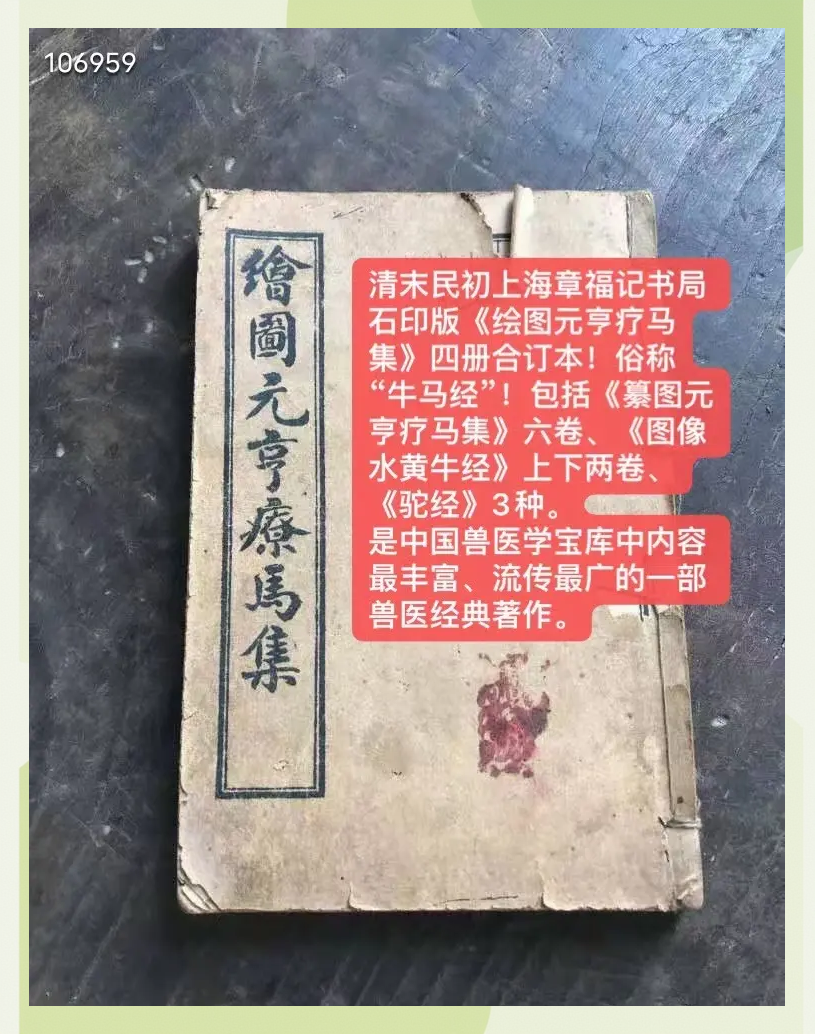 106959
繪圖元亨療馬集
清末民初上海章福记书局
石印版《绘图元亨疗马
集》四册合订本！俗称
“牛马经”！包括《纂图元
亨疗马集》六卷、《图像
水黄牛经》上下两卷、
《驼经》3种。
是中国兽医学宝库中内容
最丰富、流传最广的一部
兽医经典著作。